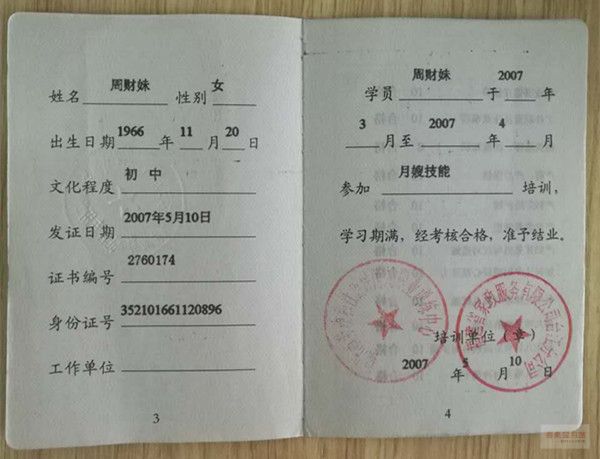 姓名 周财妹 性别 女
出生日期 1966 年 11 月 20 日
文化程度 初中
发证日期 2007年5月10日
证书编号 2760174
身份证号 352101661120896
工作单位
3
学员 周财妹 于 2007 年
3 月至 2007 年 4 月
参加 月嫂技能 培训，
学习期满，经考核合格，准予结业。
培训单位（章）
2007 年 5 月 10 日
4